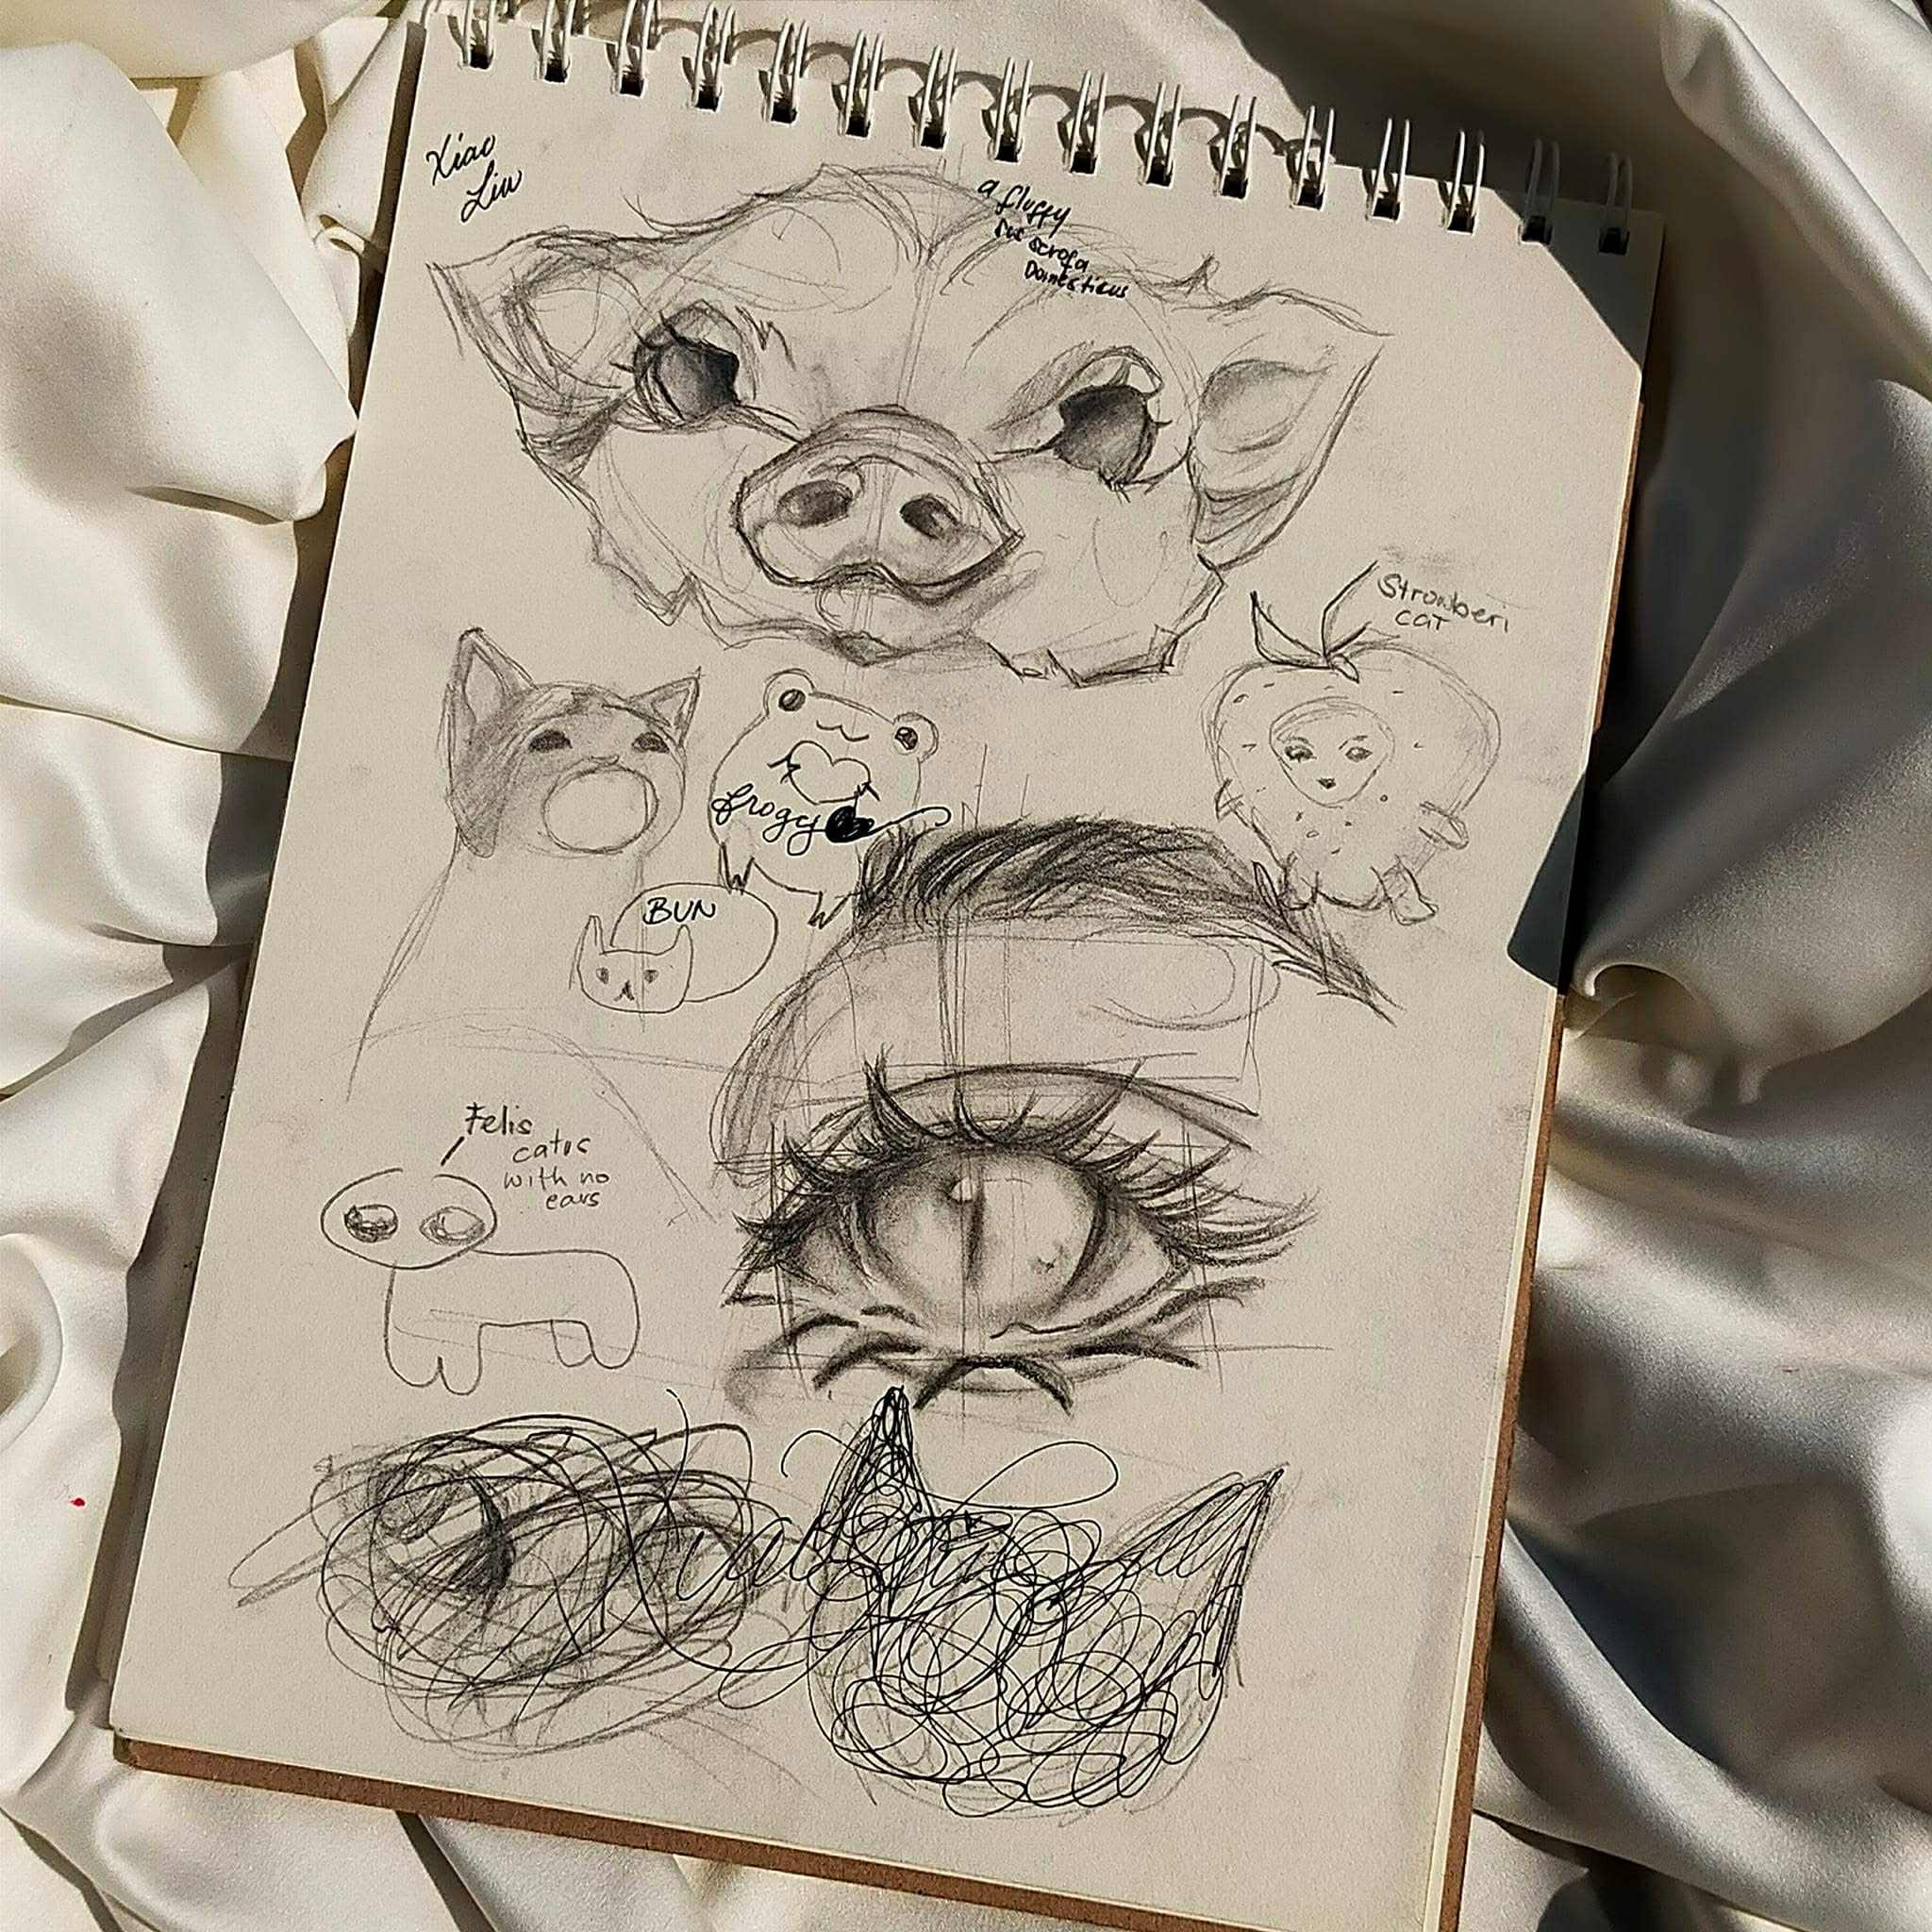 Xiao
Liu
a fluffy
Sus scrofa
Domesticus
Strowberi
cat
frogy
BUN
Felis
catus
with no
ears